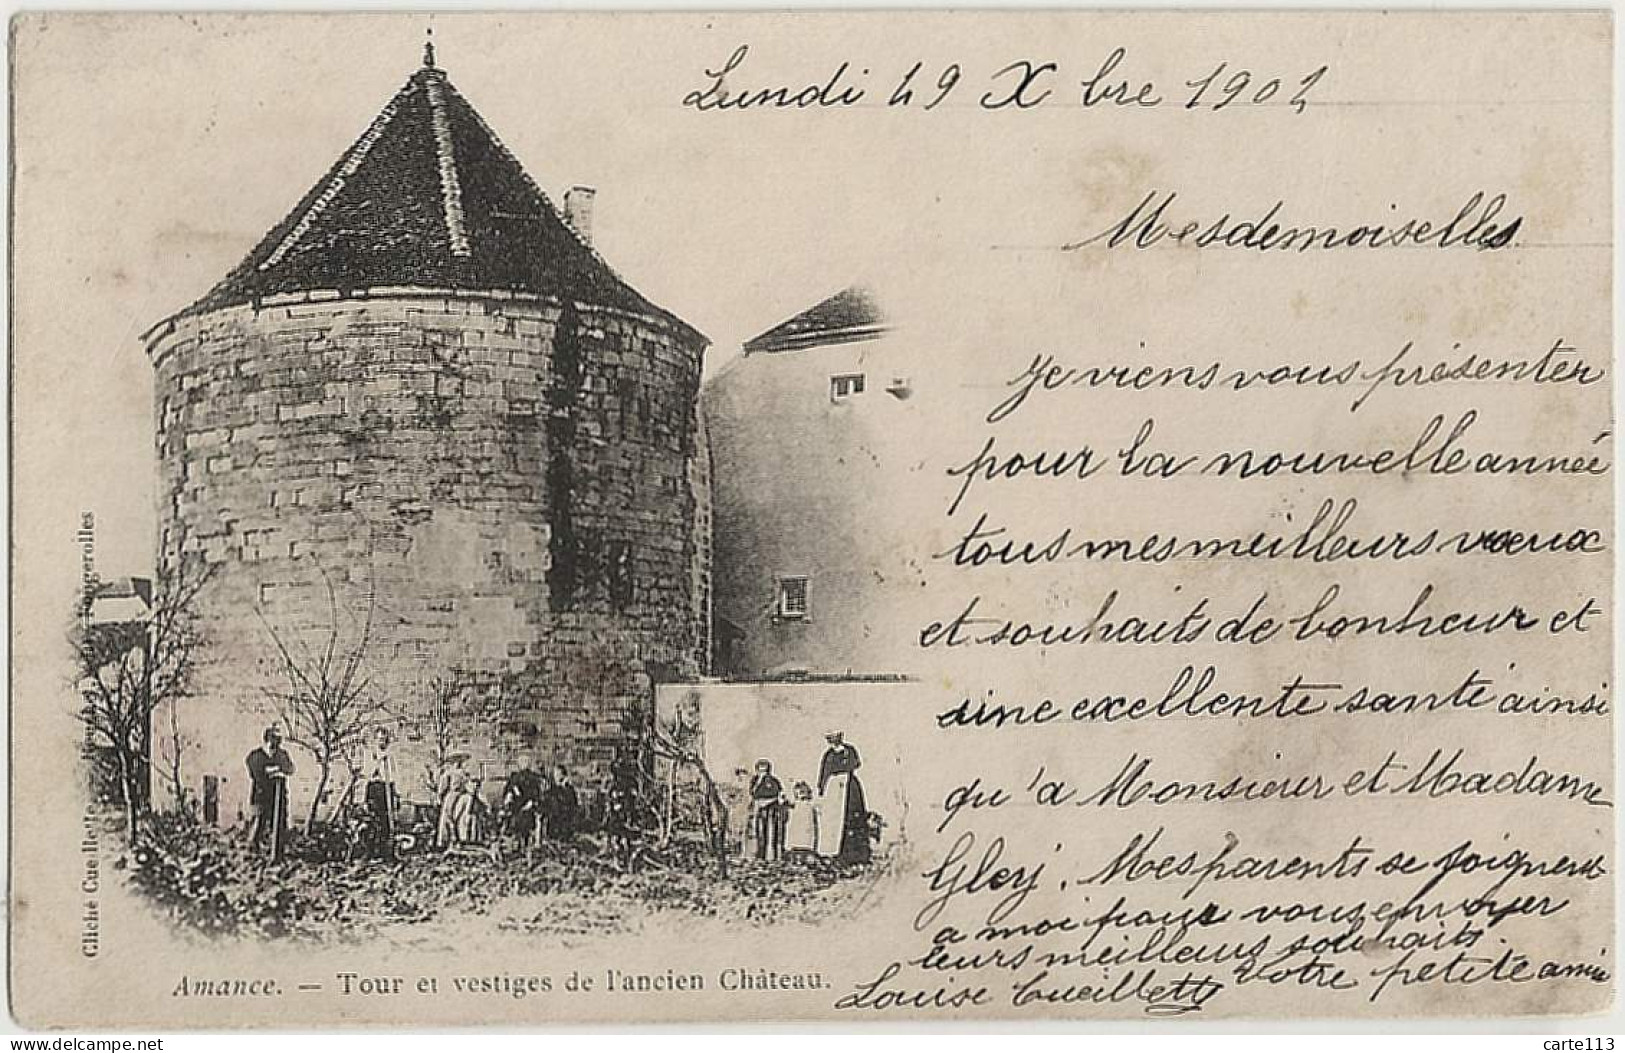 Lundi 29 Xbre 1902
Mesdemoiselles
Je viens vous présenter
pour la nouvelle année
tous mes meilleurs vœux
et souhaits de bonheur et
une excellente santé ainsi
qu'a Monsieur et Madame
Gley. Mes parents se joignent
a moi pour vous envoyer
leurs meilleurs souhaits.
Votre petite amie
Louise Cueillette
Cliché Cueillette Fougerolles
Amance. — Tour et vestiges de l'ancien Château.
delcampe.net
carte113